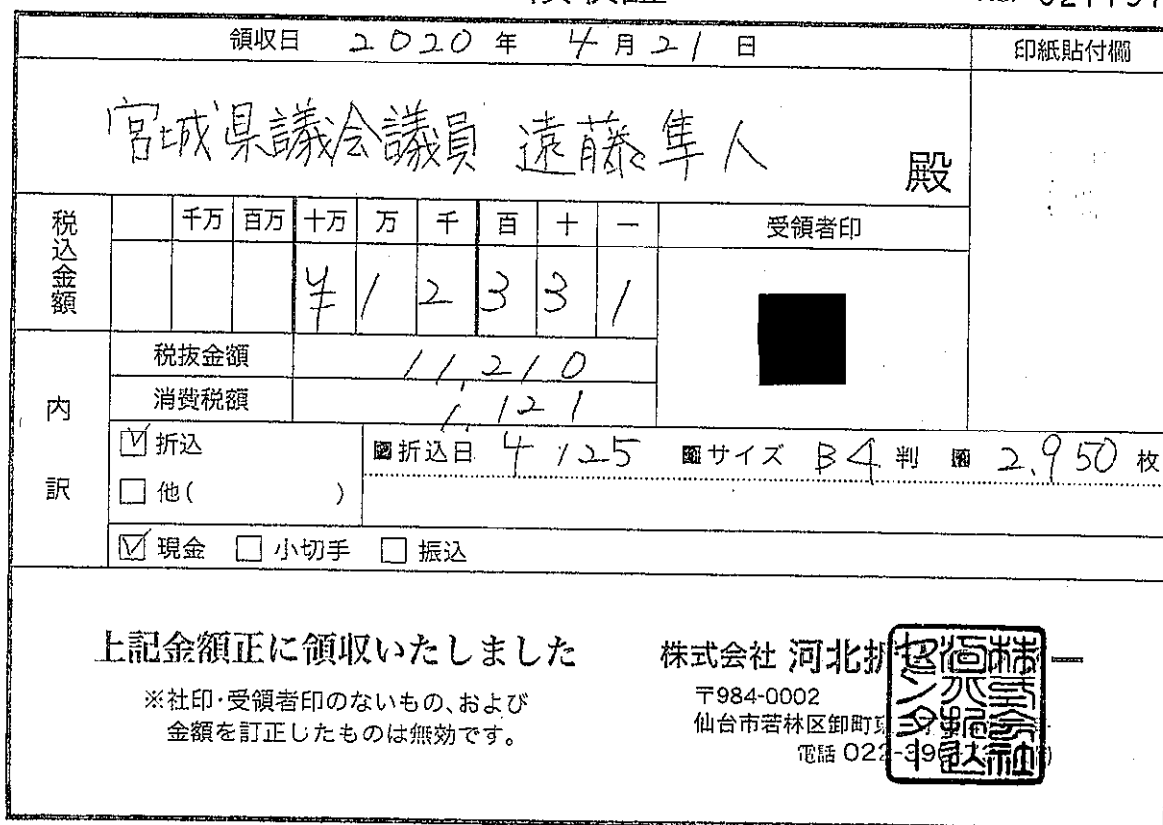 領収日 2020年 4月21日 印紙貼付欄
宮城県議会議員 遠藤隼人 殿
税込金額 千万 百万 十万 万 千 百 十 一 受領者印
¥12331
内訳
税抜金額 11,210
消費税額 1,121
☑折込 折込日 4/25 サイズ B4判 2,950枚
□他( )
☑現金 □小切手 □振込
上記金額正に領収いたしました
※社印・受領者印のないもの、および
金額を訂正したものは無効です。
株式会社 河北折
〒984-0002
仙台市若林区卸町
電話 022-39
株式会社河北折込センター